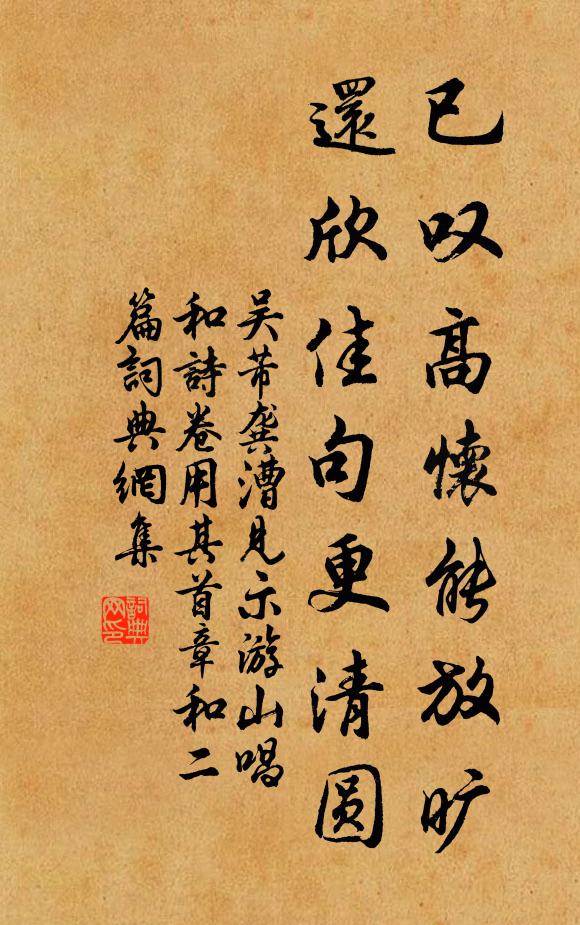 已叹高懷能放旷
還欣佳句更清圆
吴芾龚漕見示游山唱
和詩卷用其首章和二
篇詞典網集
詞典
网印